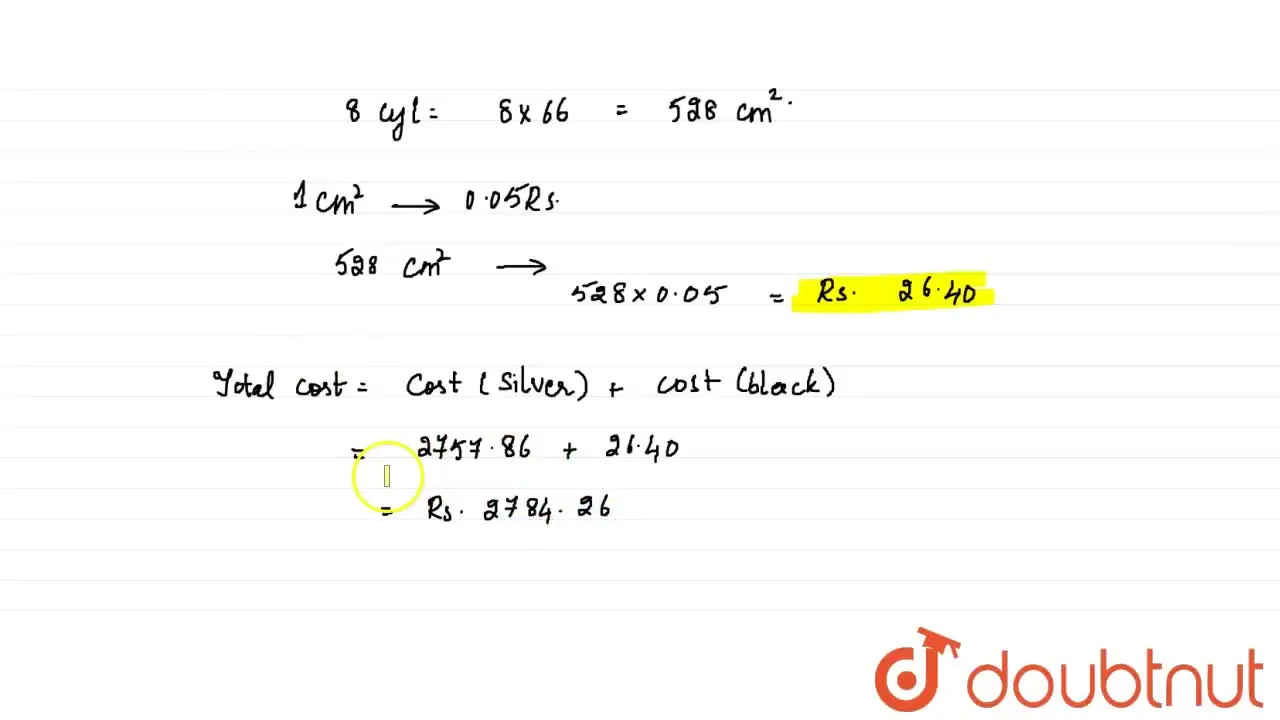 8 cyl = 8 x 66 = 528 cm².
1 cm² → 0.05Rs.
528 cm² →
528 x 0.05 = Rs. 26.40
Total cost = Cost (Silver) + cost (black)
= 2757.86 + 26.40
= Rs. 2784.26
doubtnut